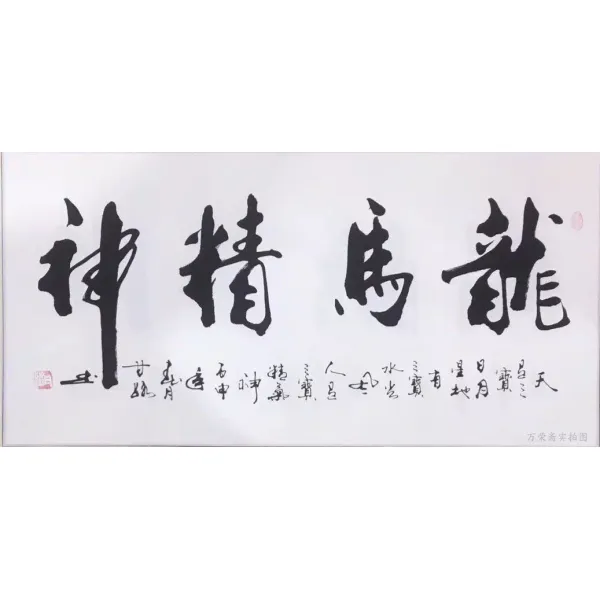 龍馬精神
天
具三
寶
日月
星地
有
三寶
水火
风
人具
三寶
精氣
神
丙申
年
春月
万荣斋实拍图